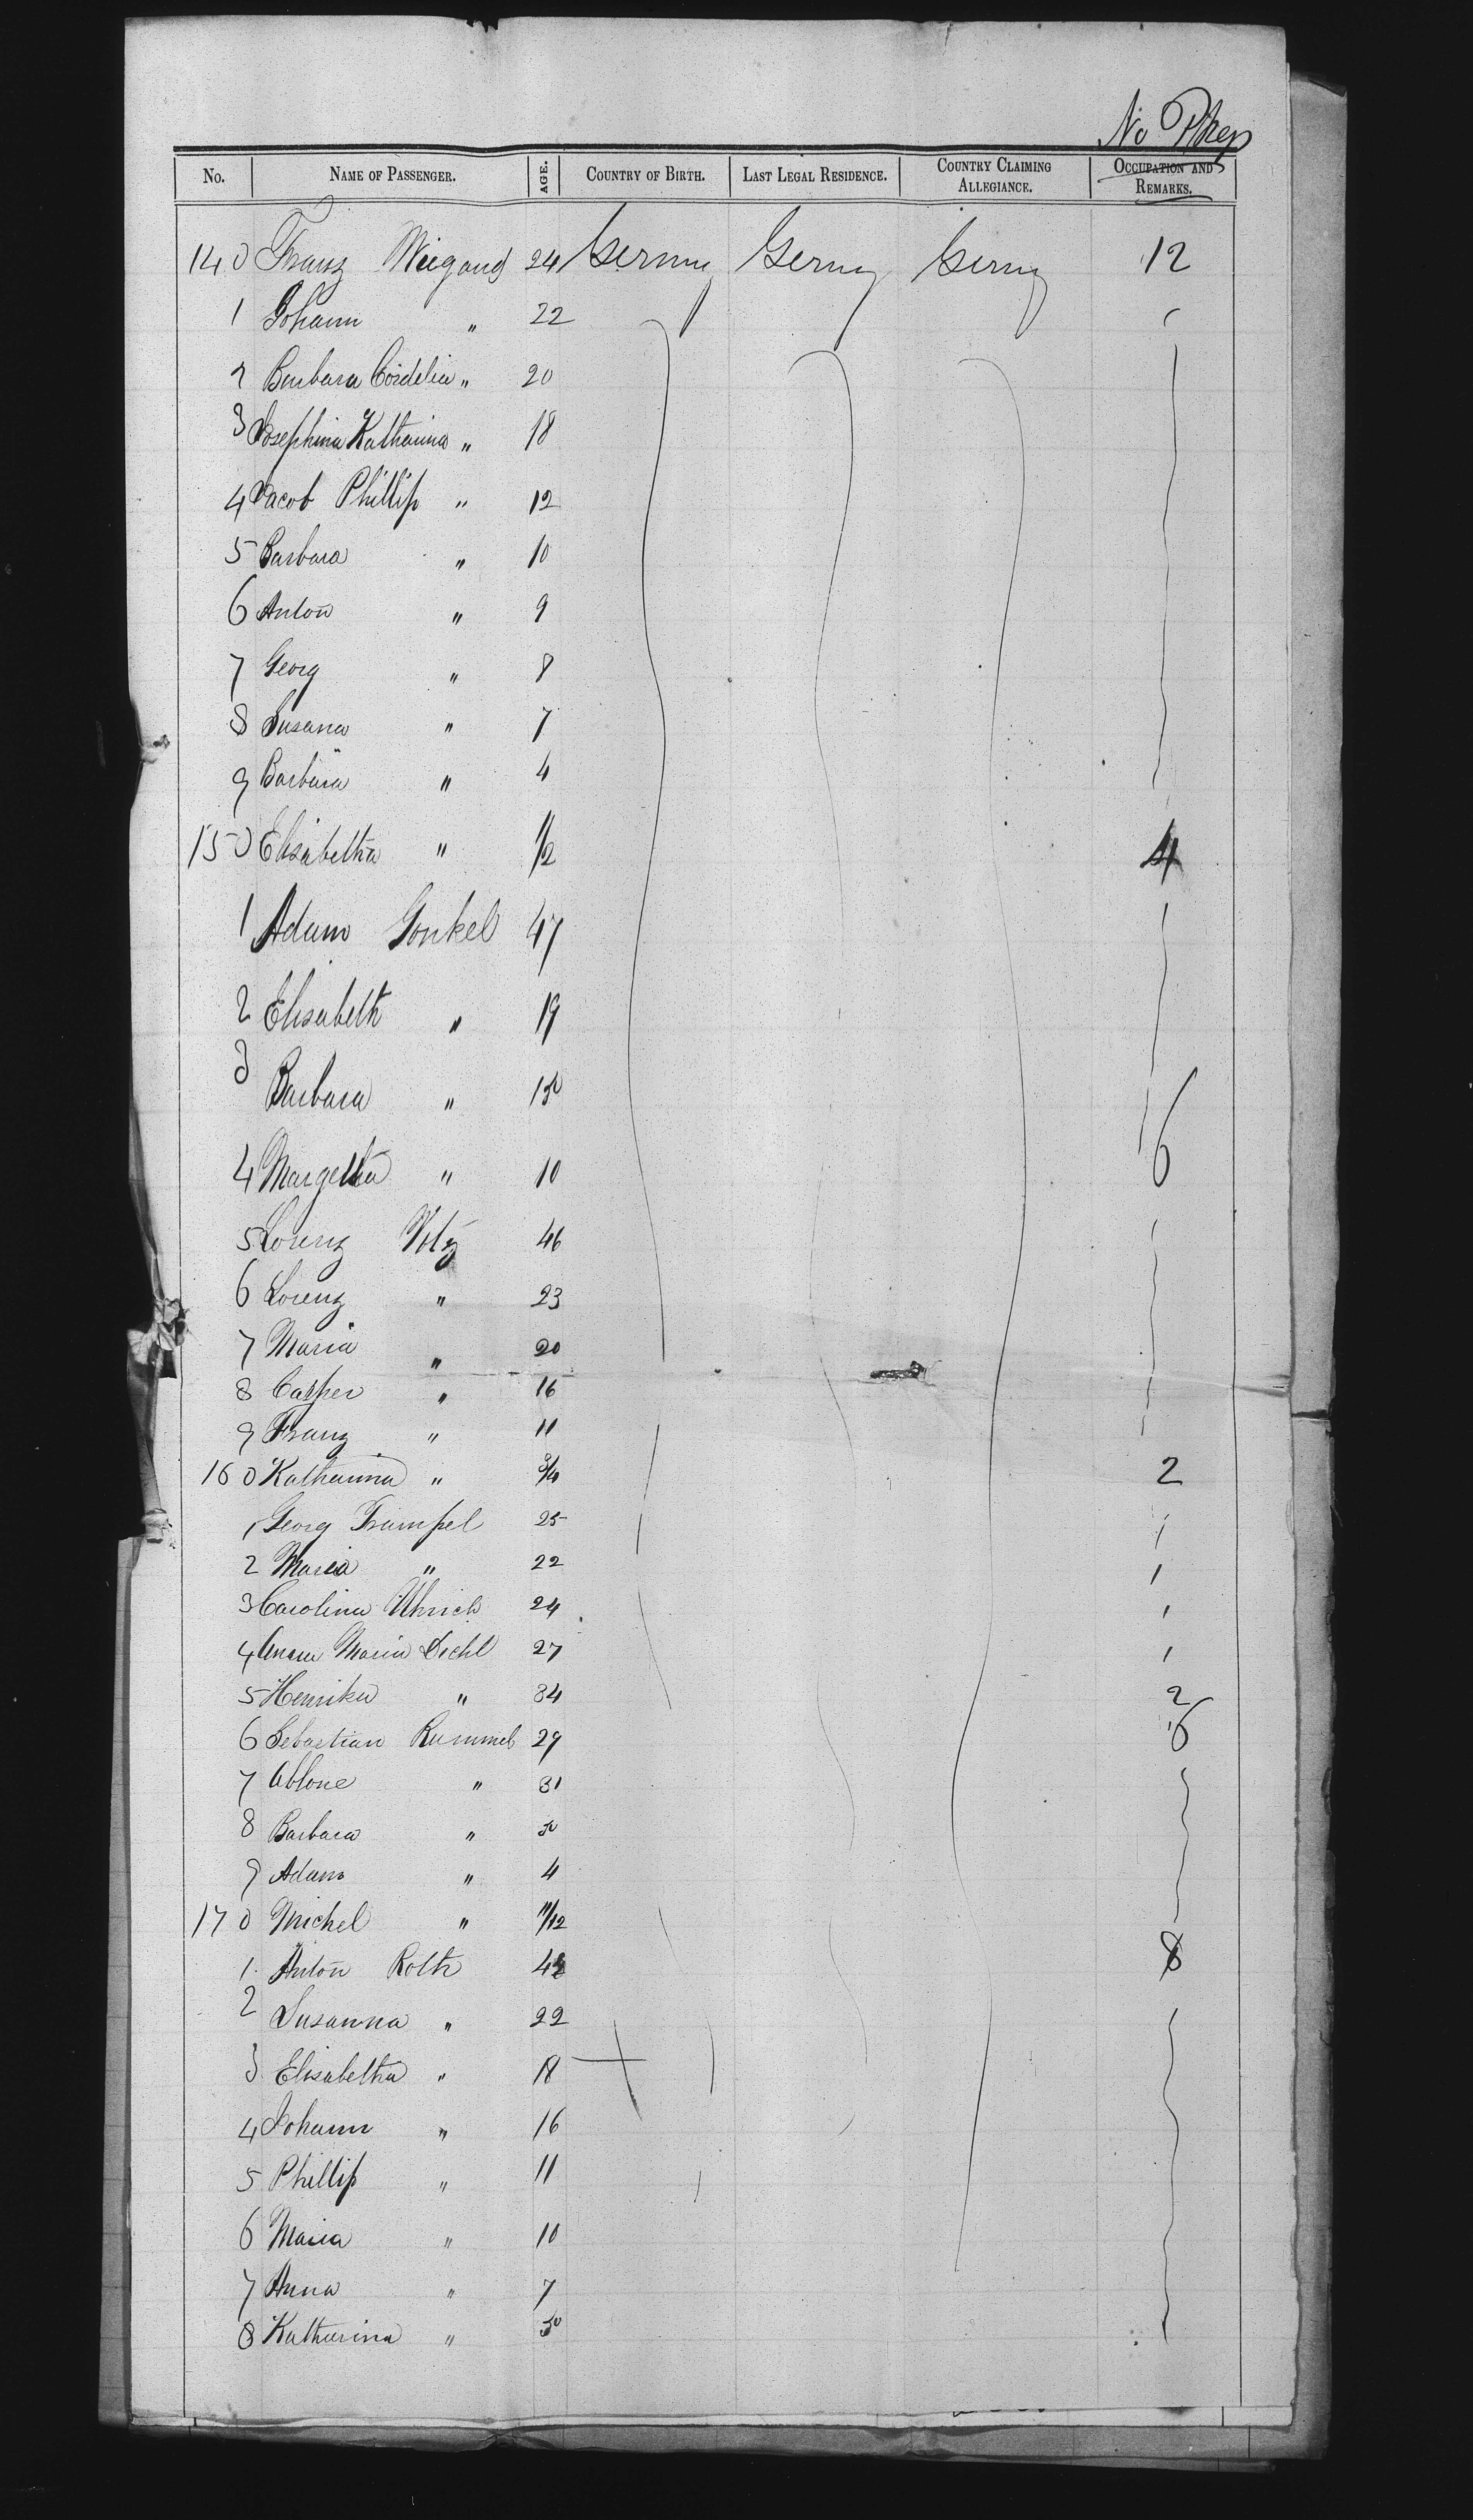 No Phys
No. NAME OF PASSENGER. AGE. COUNTRY OF BIRTH. LAST LEGAL RESIDENCE. COUNTRY CLAIMING ALLEGIANCE. OCCUPATION AND REMARKS.
140 Franz Wiegand 24 Germy Germy Germy 12
1 Johann " 22
2 Barbara Cordelia " 20
3 Josephina Katharina " 18
4 Jacob Phillip " 12
5 Barbara " 10
6 Anton " 9
7 Georg " 8
8 Susana " 7
9 Barbara " 4
150 Elisabetha " 1/2 4
1 Adam Gonkel 47
2 Elisabeth " 19
3 Barbara " 15 6
4 Margetha " 10
5 Lorenz Volz 46
6 Lorenz " 23
7 Maria " 20
8 Casper " 16
9 Franz " 11
160 Katharina " 3/4 2
1 Georg Trumpel 25
2 Maria " 22
3 Carolina Uhrich 24 1
4 Anna Maria Diehl 27 1
5 Henrika " 34 2
6 Sebastian Rummel 29 6
7 " 31
8 Barbara " 5
9 Adam " 4
170 Michel " 11/12
1 Anton Roth 42 8
2 Susanna " 22
3 Elisabetha " 18
4 Johann " 16
5 Phillip " 11
6 Maria " 10
7 Anna " 7
8 Katharina " 5